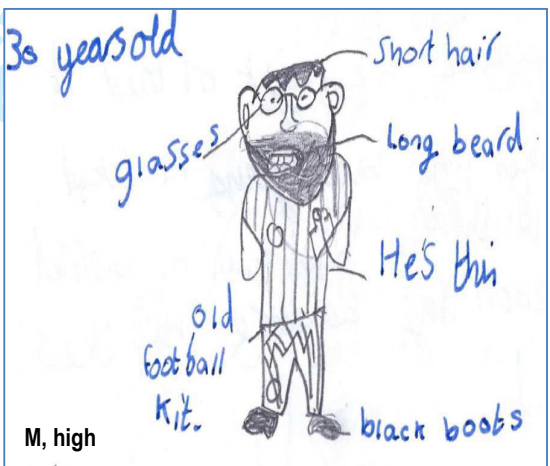 30 years old
short hair
glasses
Long beard
He's thin
old
football
kit.
black boots
M, high